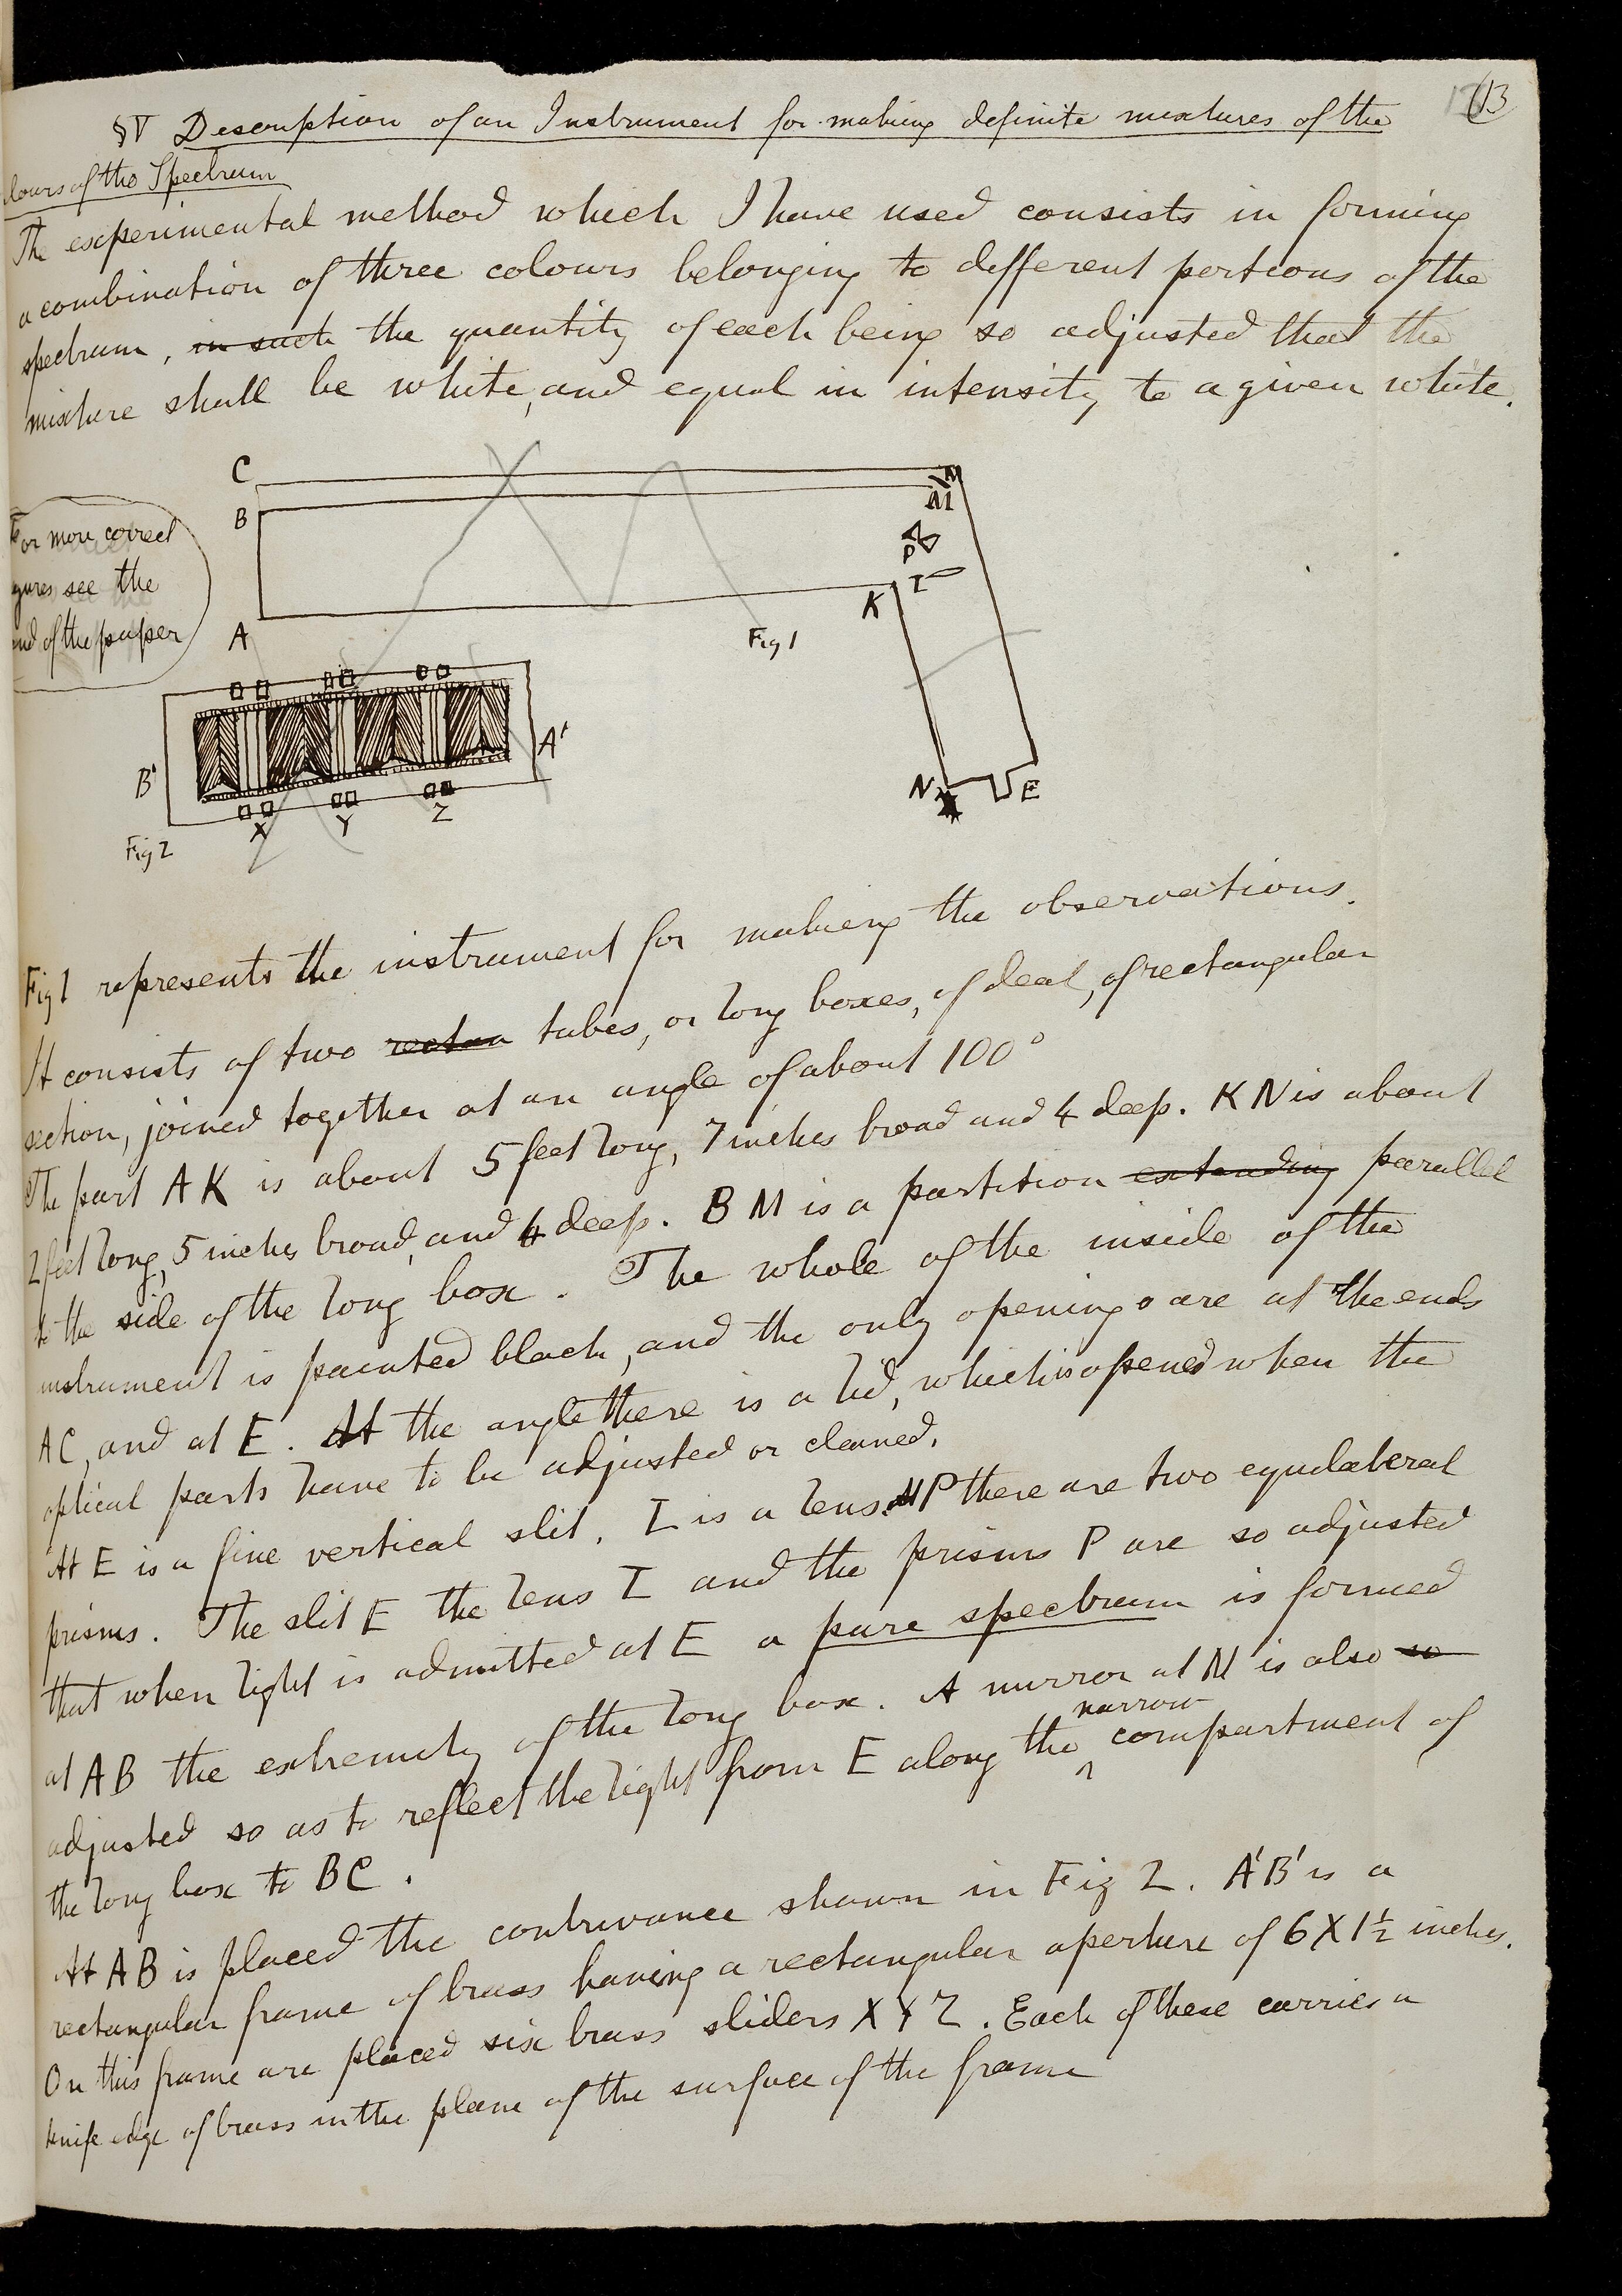 13
§V Description of an Instrument for making definite mixtures of the
lours of the Spectrum
The experimental method which I have used consists in forming
a combination of three colours belonging to different portions of the
spectrum, in such the quantity of each being so adjusted that the
mixture shall be white, and equal in intensity to a given white.
C
B
A
M
M
P
L
K
Fig 1
N
E
For more correct
gures see the
end of the paper
B'
A'
X
Y
Z
Fig 2
Fig 1 represents the instrument for making the observations.
It consists of two rectan tubes, or long boxes, of deal, of rectangular
section, joined together at an angle of about 100°
The part AK is about 5 feet long, 7 inches broad and 4 deep. KN is about
2 feet long, 5 inches broad, and 4 deep. BM is a partition extending parallel
to the side of the long box. The whole of the inside of the
instrument is painted black, and the only openings are at the ends
AC, and at E. At the angle there is a lid, which is opened when the
optical parts have to be adjusted or cleaned.
At E is a fine vertical slit. L is a lens. At P there are two equilateral
prisms. The slit E the lens L and the prisms P are so adjusted
that when light is admitted at E a pure spectrum is formed
at AB the extremity of the long box. A mirror at M is also so
adjusted so as to reflect the light from E along the narrow compartment of
the long box to BC.
At AB is placed the contrivance shown in Fig 2. A'B' is a
rectangular frame of brass having a rectangular aperture of 6 X 1½ inches.
On this frame are placed six brass sliders X Y Z. Each of these carries a
knife edge of brass in the plane of the surface of the frame